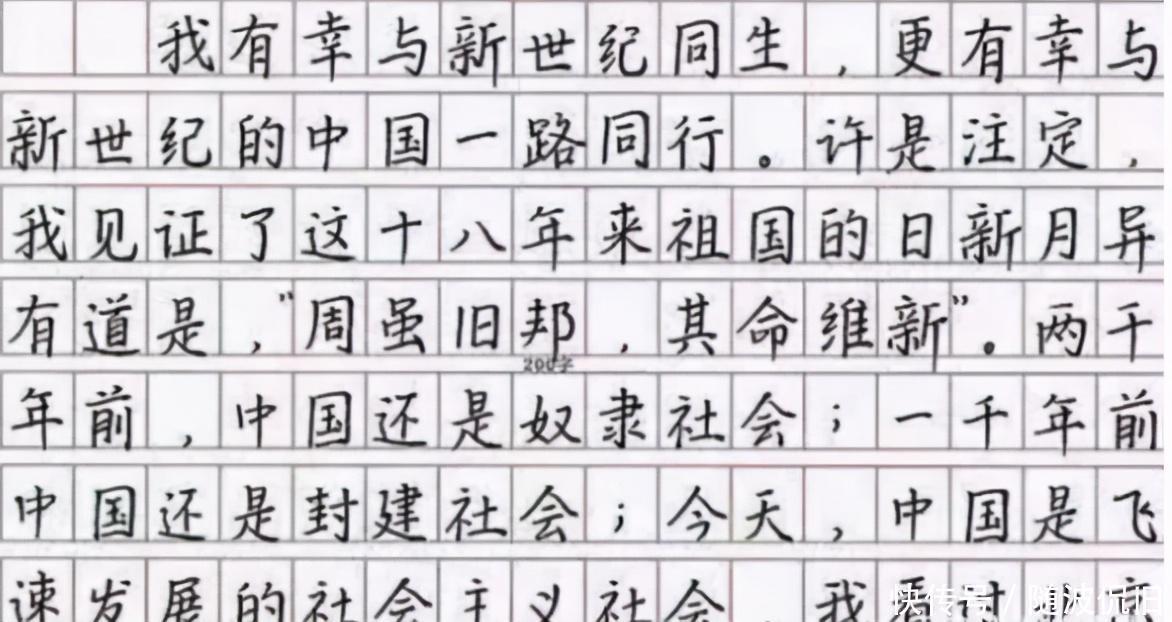 我有幸与新世纪同生，更有幸与
新世纪的中国一路同行。许是注定，
我见证了这十八年来祖国的日新月异
有道是，“周虽旧邦，其命维新”。两千
200字
年前，中国还是奴隶社会；一千年前
中国还是封建社会；今天，中国是飞
速发展的社会主义社会，我看
快传号 / 随波侃旧